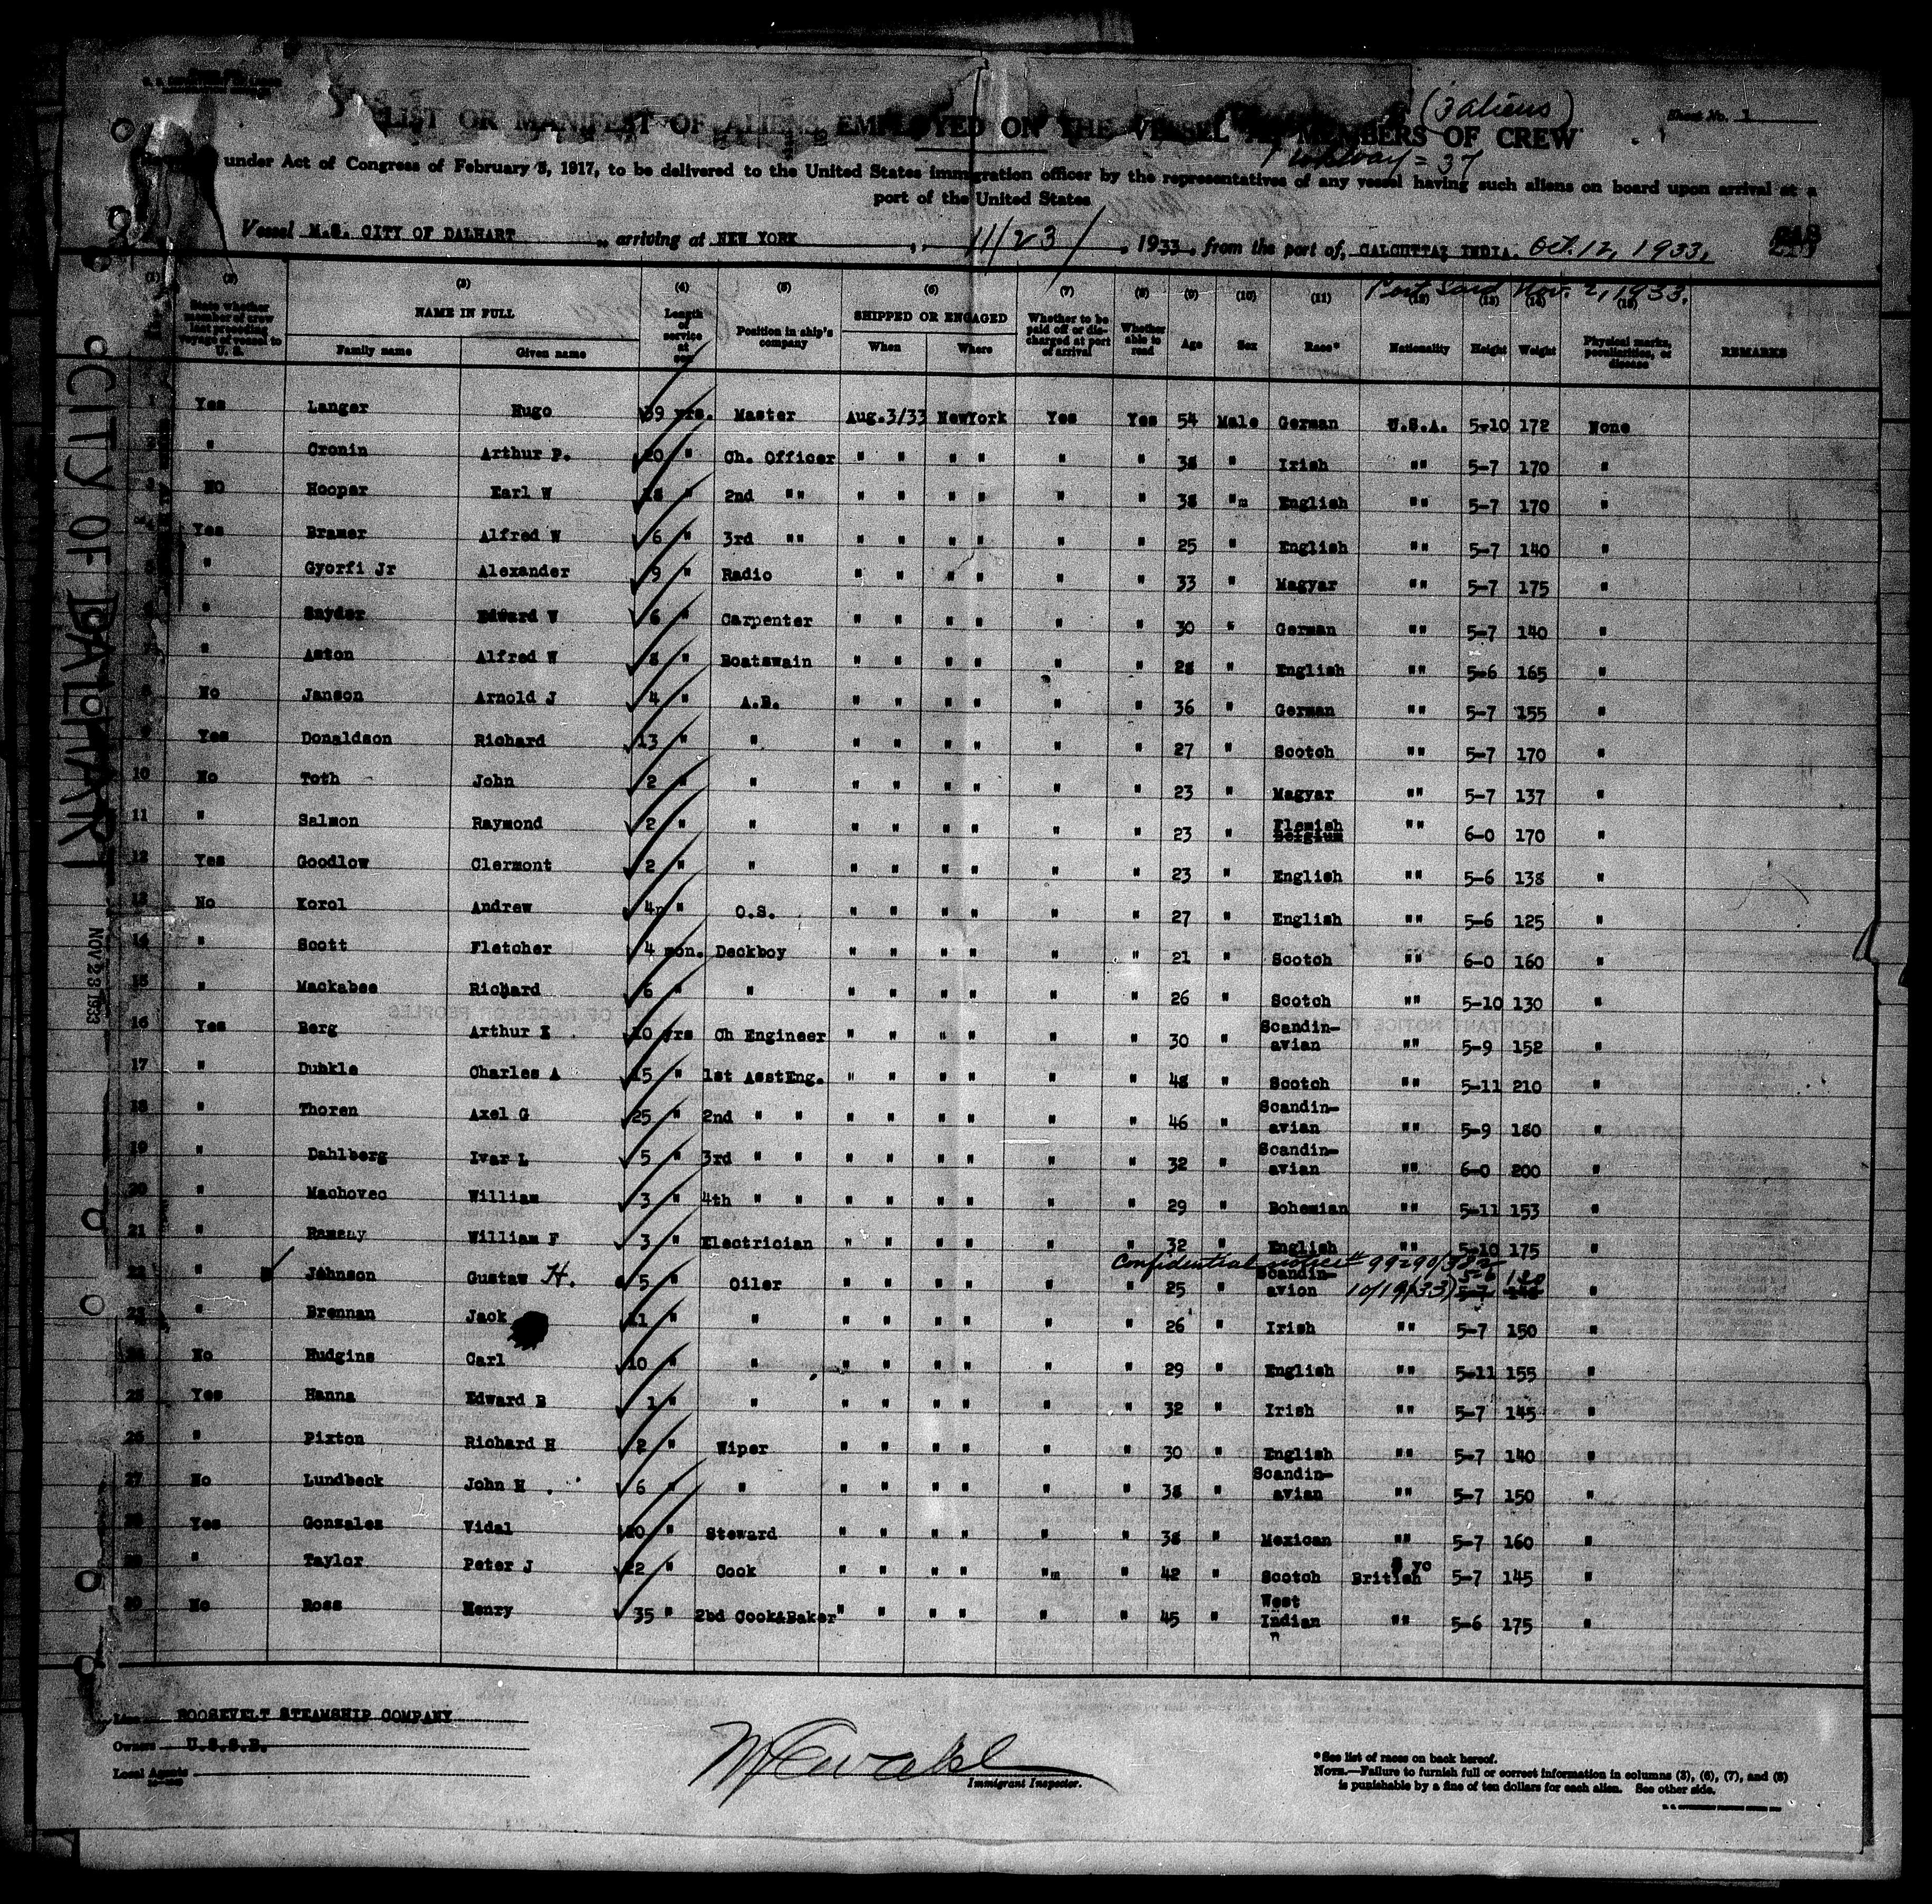 (3 aliens)
Sheet No. 1
LIST OR MANIFEST OF ALIENS EMPLOYED ON THE VESSEL AS MEMBERS OF CREW
= 37
under Act of Congress of February 5, 1917, to be delivered to the United States immigration officer by the representatives of any vessel having such aliens on board upon arrival at a
port of the United States
Vessel M.S. CITY OF DALHART, arriving at NEW YORK, 11/23/, 1933, from the port of, CALCUTTA, INDIA. Oct. 12, 1933.
Port Said Nov. 2, 1933.
(1) (2) (3) (4) (5) (6) (7) (8) (9) (10) (11) (12) (13) (14) (15)
State whether member of crew last preceding voyage of vessel to U. S. NAME IN FULL Family name Given name Length of service at sea Position in ship's company SHIPPED OR ENGAGED When Where Whether to be paid off or discharged at port of arrival Whether able to read Age Sex Race* Nationality Height Weight Physical marks, peculiarities, or disease REMARKS
1 Yes Langer Hugo 39 yrs. Master Aug.3/33 NewYork Yes Yes 54 Male German U.S.A. 5-10 172 None
2 " Cronin Arthur P. 20 " Ch. Officer " " " " " " 38 " Irish "" 5-7 170 "
3 NO Hooper Earl W 18 " 2nd "" " " " " " " 38 "m English "" 5-7 170 "
4 Yes Bramer Alfred W 6 " 3rd "" " " " " " " 25 " English "" 5-7 140 "
5 " Gyorfi Jr Alexander 9 " Radio " " " " " " 33 " Magyar "" 5-7 175 "
6 " Snyder Edward W 6 " Carpenter " " " " " " 30 " German "" 5-7 140 "
7 " Aston Alfred W 8 " Boatswain " " " " " " 28 " English "" 5-6 165 "
8 No Janson Arnold J 4 " A.B. " " " " " " 36 " German "" 5-7 155 "
9 Yes Donaldson Richard 13 " " " " " " " " 27 " Scotch "" 5-7 170 "
10 No Toth John 2 " " " " " " " " 23 " Magyar "" 5-7 137 "
11 " Salmon Raymond 2 " " " " " " " " 23 " Flemish Belgium "" 6-0 170 "
12 Yes Goodlow Clermont 2 " " " " " " " " 23 " English "" 5-6 138 "
13 No Korol Andrew 4 " O.S. " " " " " " 27 " English "" 5-6 125 "
14 " Scott Fletcher 4 mon. Deckboy " " " " " " 21 " Scotch "" 6-0 160 "
15 " Mackabee Richard 6 " " " " " " " " 26 " Scotch "" 5-10 130 "
16 Yes Berg Arthur E 10 yrs Ch Engineer " " " " " " 30 " Scandin-avian "" 5-9 152 "
17 " Dunkle Charles A 15 " 1st AsstEng. " " " " " " 48 " Scotch "" 5-11 210 "
18 " Thoren Axel G 25 " 2nd " " " " " " " " 46 " Scandin-avian "" 5-9 180 "
19 " Dahlberg Ivar L 5 " 3rd " " " " " " " " 32 " Scandin-avian "" 6-0 200 "
20 " Machovec William 3 " 4th " " " " " " " " 29 " Bohemian "" 5-11 153 "
21 " Rameny William F 3 " Electrician " " " " " " 32 " English "" 5-10 175 "
Confidential notice # 99290/382
22 " Johnson Gustav H. 5 " Oiler " " " " " " 25 " Scandin-avion 10/19/33) 5-6 5-7 "
23 " Brennan Jack 11 " " " " " " " " 26 " Irish "" 5-7 150 "
24 No Hudgins Carl 10 " " " " " " " " 29 " English "" 5-11 155 "
25 Yes Hanna Edward B 1 " " " " " " " " 32 " Irish "" 5-7 145 "
26 " Pixton Richard H 2 " Wiper " " " " " " 30 " English "" 5-7 140 "
27 No Lundbeck John H . 6 " " " " " " " " 38 " Scandin-avian "" 5-7 150 "
28 Yes Gonzales Vidal 20 " Steward " " " " " " 38 " Mexican "" 5-7 160 "
29 " Taylor Peter J 22 " Cook " " " " "m " 42 " Scotch British 5-7 145 "
30 No Ross Henry 35 " 2bd Cook&Baker " " " " " " 45 " West Indian " "" 5-6 175 "
CITY OF DALHART
NOV 23 1933
Line ROOSEVELT STEAMSHIP COMPANY
Owners U.S.S.B.
Local Agents
Immigrant Inspector.
*See list of races on back hereof.
NOTE.—Failure to furnish full or correct information in columns (3), (6), (7), and (8)
is punishable by a fine of ten dollars for each alien. See other side.